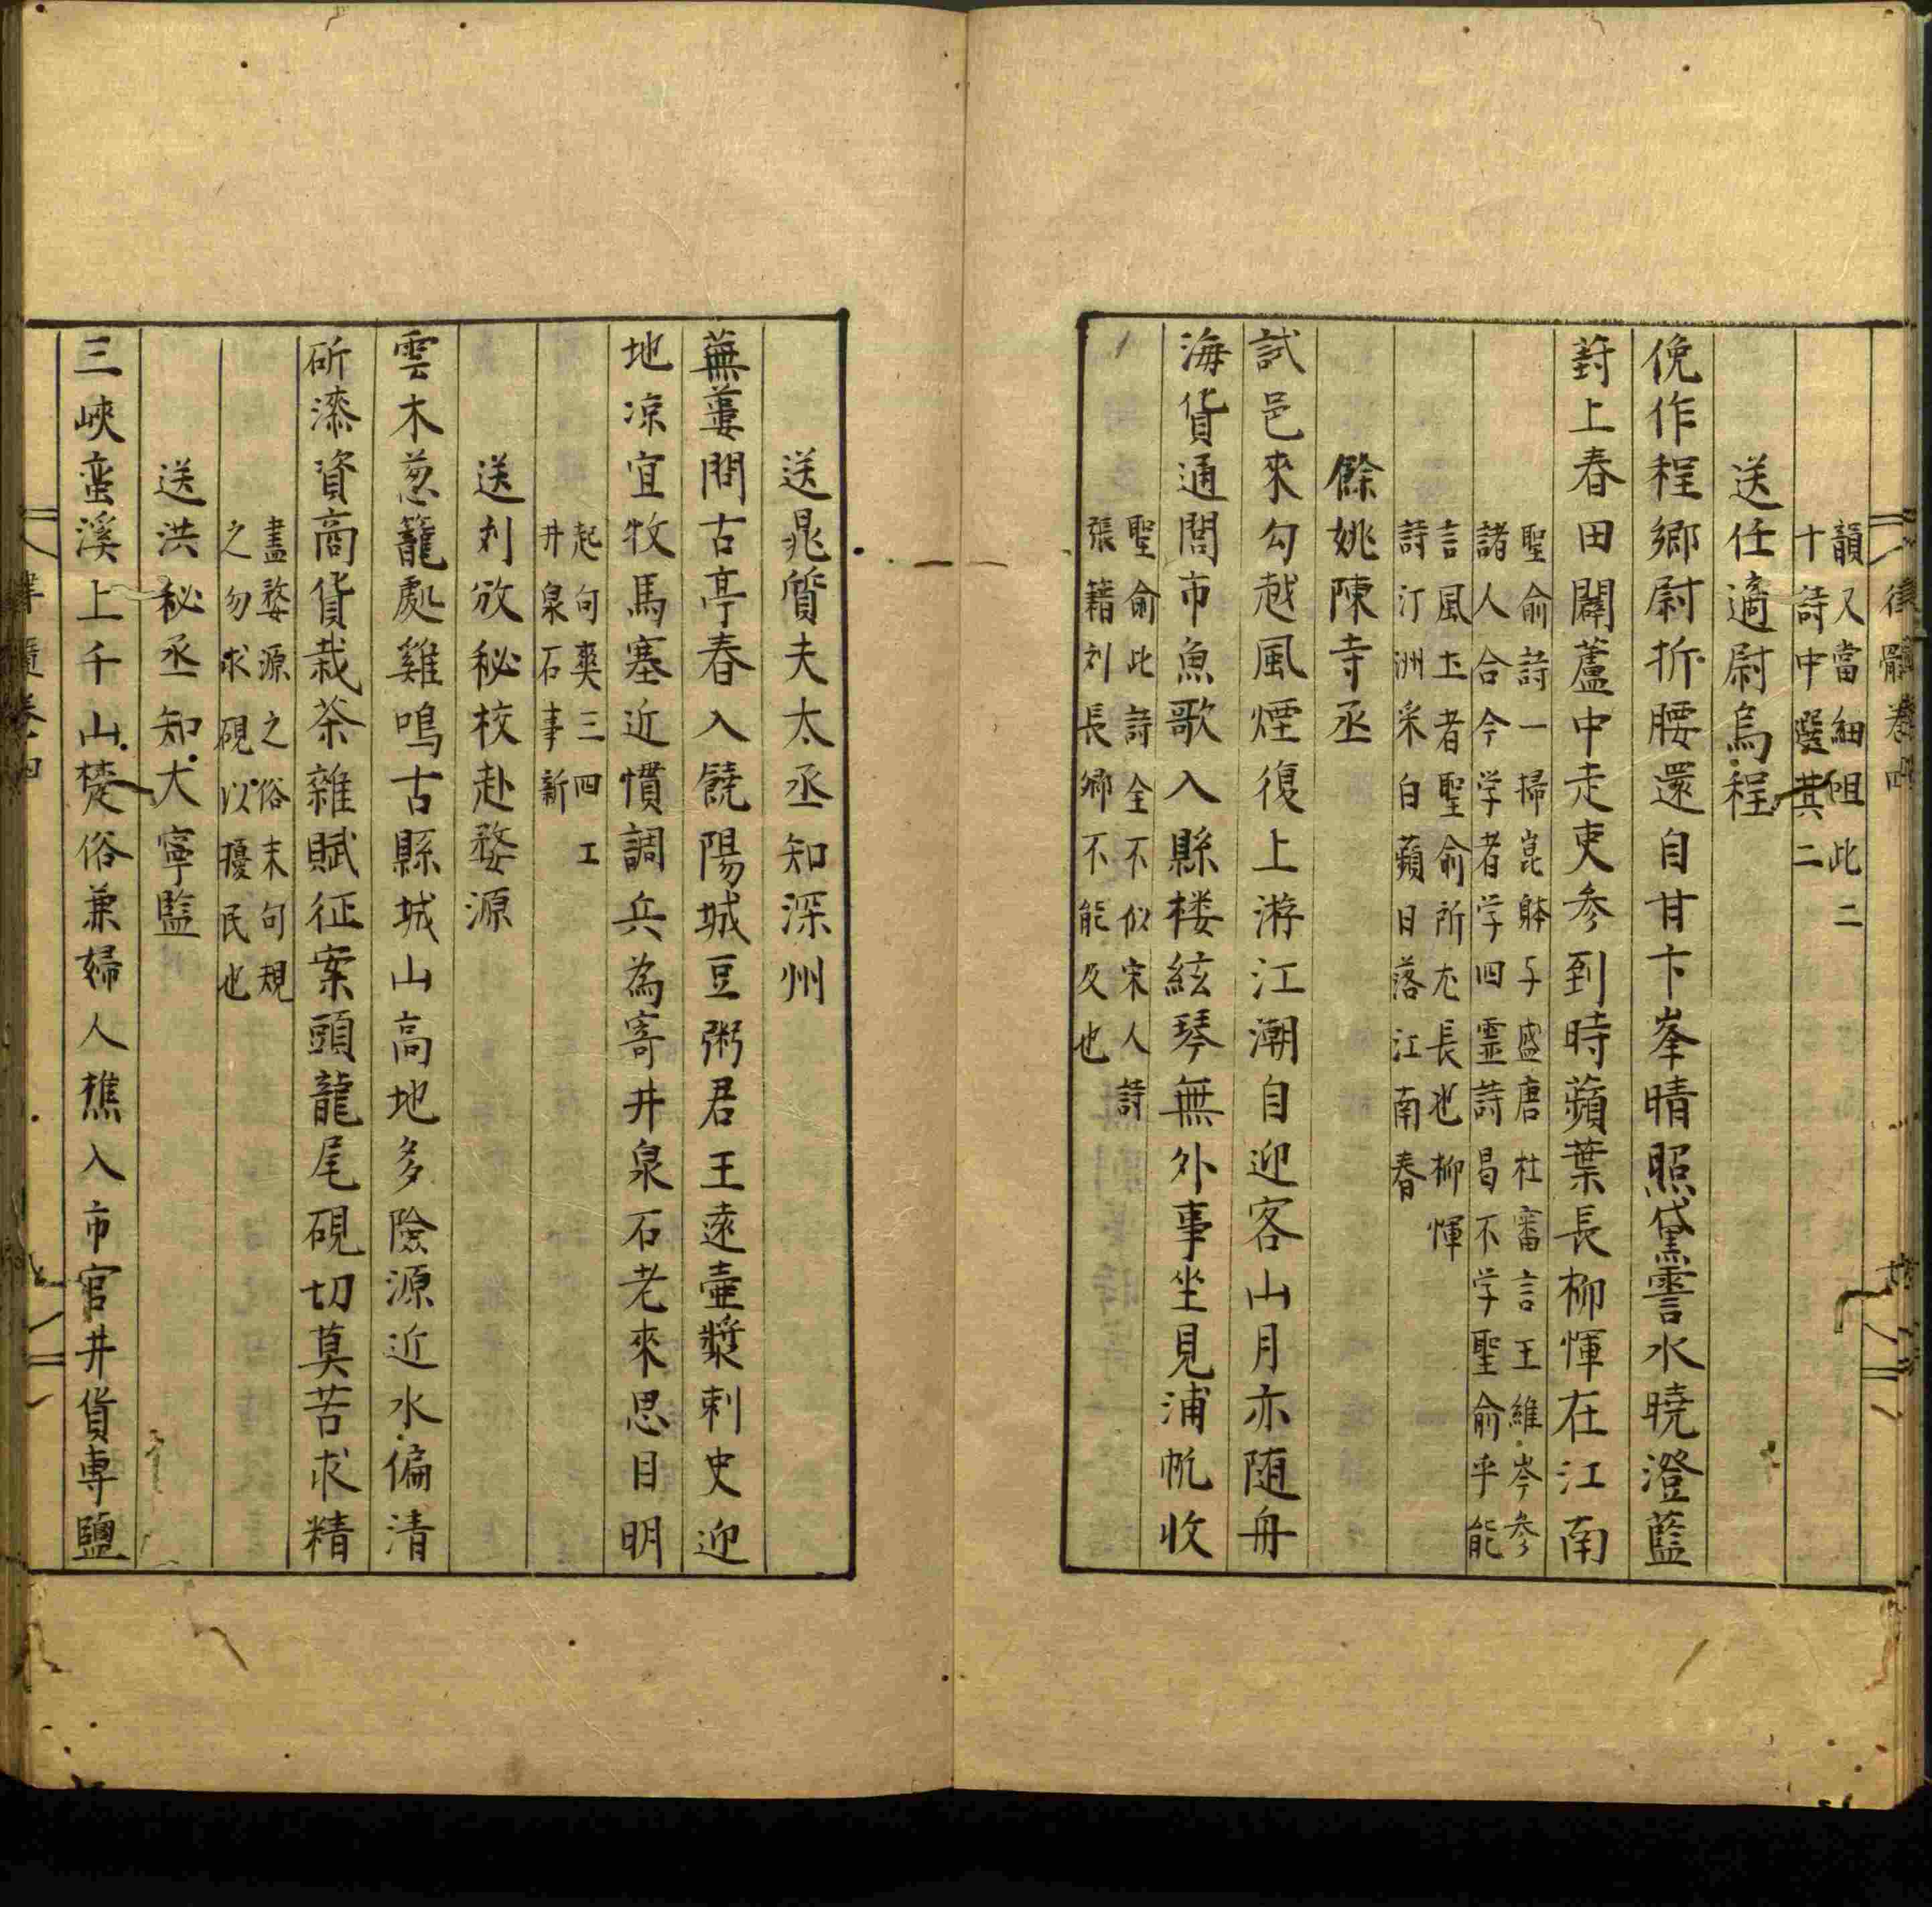 律髓卷四
韻又當細咀此二
十詩中選其二
送任適尉烏程
俛作程鄉尉折腰還自甘卞峯晴照黛霅水曉澄藍
葑上春田闢蘆中走吏參到時蘋葉長柳惲在江南
聖俞詩一掃崑躰与盛唐杜審言王維岑參
諸人合今学者学四霊詩曷不学聖俞乎能
言風土者聖俞所尢長也柳惲
詩汀洲采白蘋日落江南春
餘姚陳寺丞
試邑來勾越風煙復上游江潮自迎客山月亦随舟
海貨通閭市魚歌入縣楼絃琴無外事坐見浦帆收
聖俞此詩全不似宋人詩
張籍刘長鄉不能及也
送晁質夫太丞知深州
蕪蔞問古亭春入饒陽城豆粥君王遠壷漿刺史迎
地凉宜牧馬塞近慣調兵為寄井泉石老來思目明
起句奭三四工
井泉石事新
送刘攽秘校赴婺源
雲木葱籠處雞鳴古縣城山高地多險源近水偏清
斫漆資商貨栽茶雜賦征案頭龍尾硯切莫苦求精
盡婺源之俗末句規
之勿求硯以擾民也
送洪秘丞知大寧監
三峽蛮溪上千山楚俗兼婦人樵入市官井貨専鹽
律髓卷四